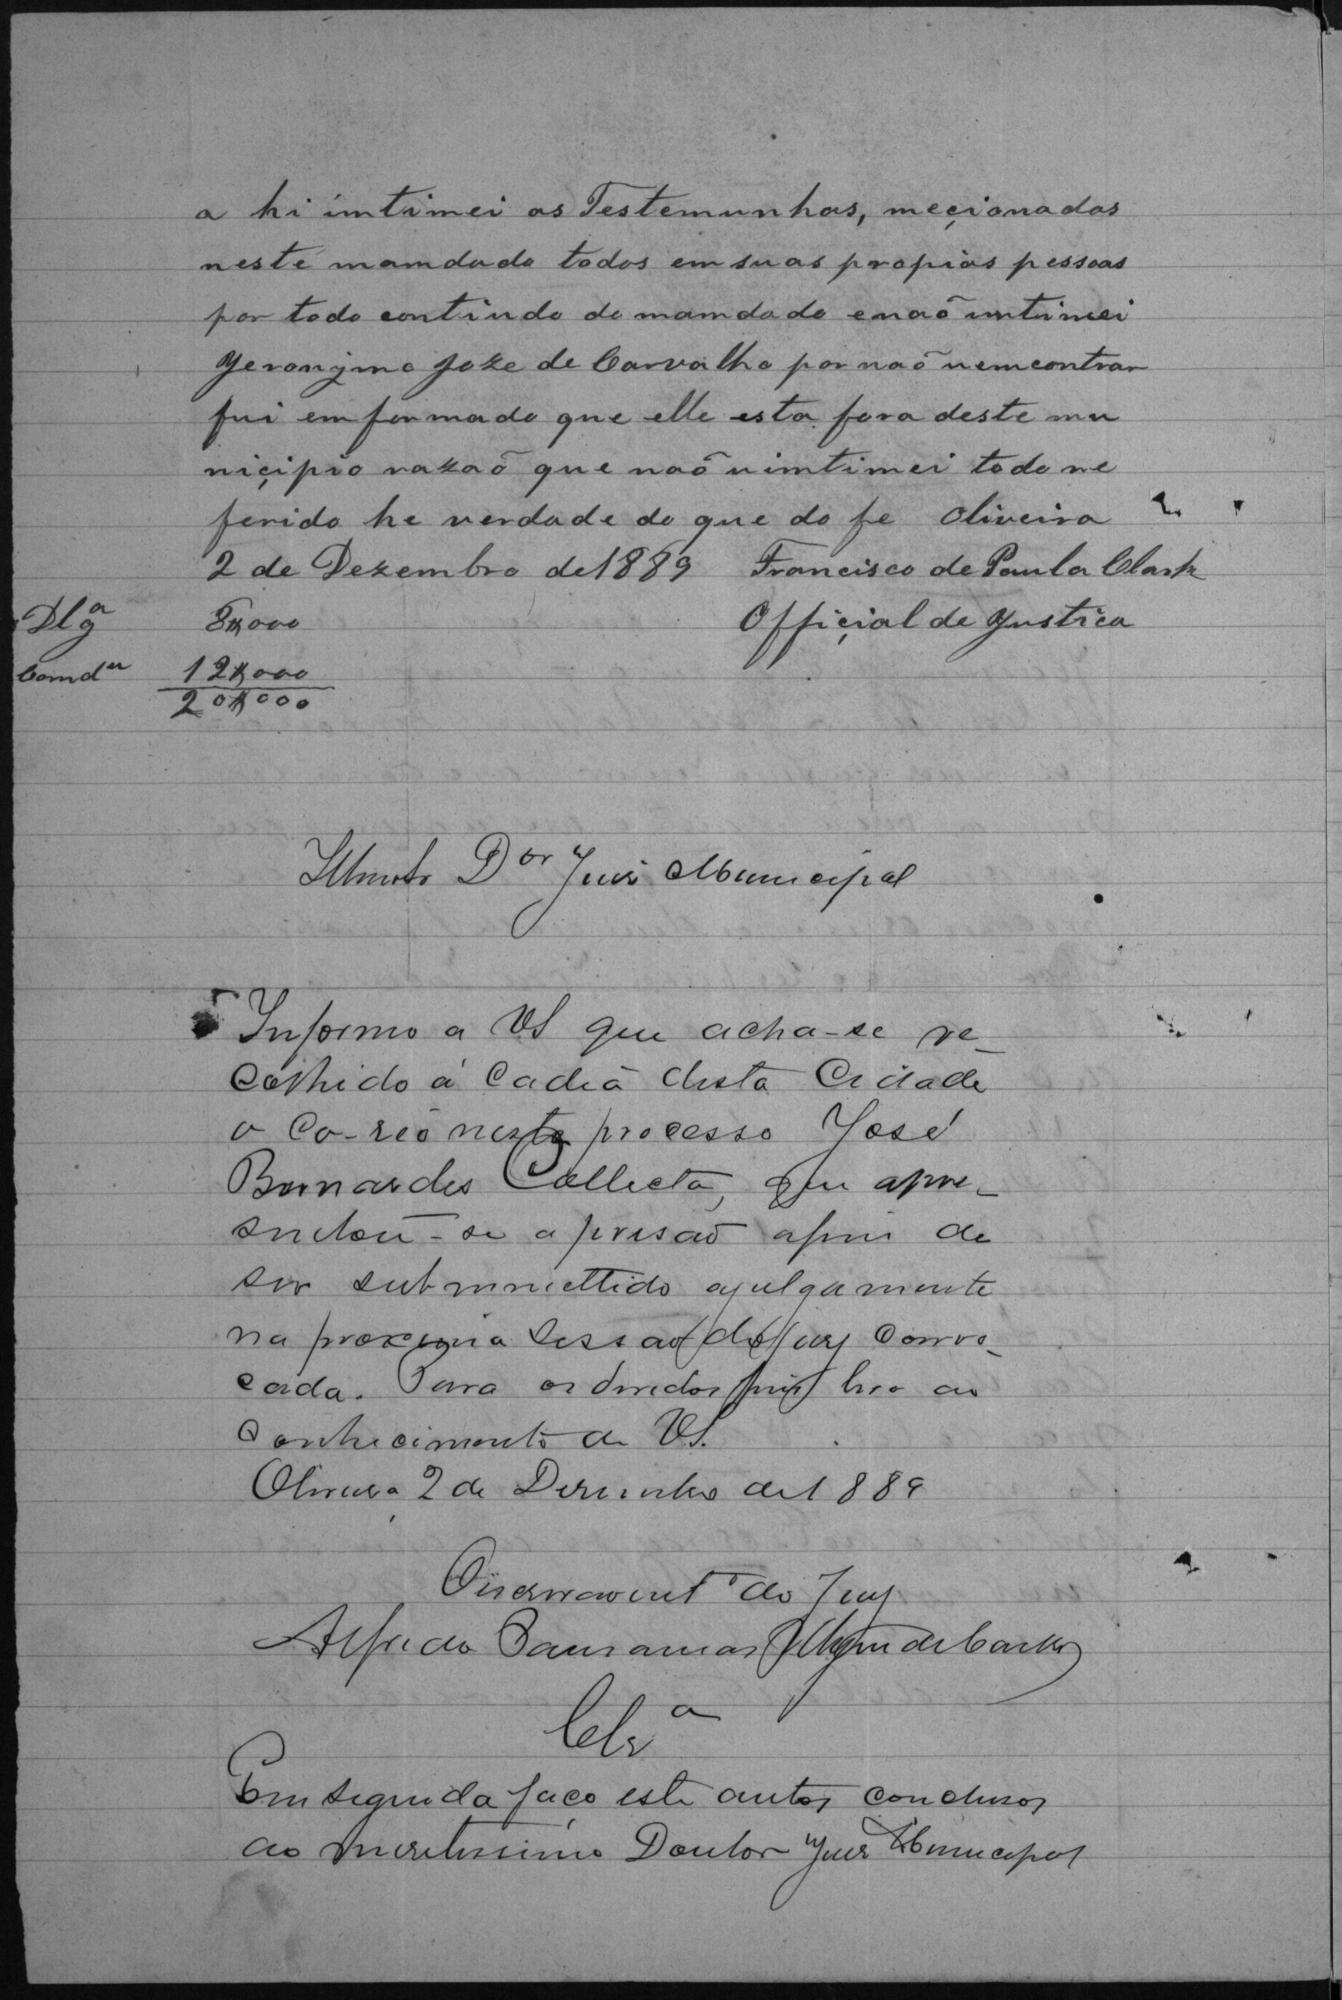 a hi imtimei as Testemunhas, meçionadas
neste mamdado todos em suas propias pessoas
por todo contiudo do mamdado e naõ imtimei
Jeronymo Joze de Carvalho por naõ u emcontrar
fui emformado que elle esta fora deste mu
niçipio razaõ que naõ u imtimei todo re
ferido he verdade do que do fe Oliveira
2 de Dezembro de 1889 Francisco de Paula Clark
Dlgª 8$000 Offiçial de Justica
Comdu 12$000
20$000
Dor Juis Municipal
Informo a VS que acha-se re-
colhido á Cadeā desta Cidade
o Co-reo neste processo José
Bernardes Collecta, que apre-
sentou-se a prisaõ afim de
ser submmettido a julgamento
na proxima Sessaõ do Jury convo-
cada. Para os devidos fins levo ao
conhecimento de VS.
Oliveira 2 de Desembro de 1889
do Jury
Alfredo
Clsª
Em seguida faço este autos conclusos
ao meretissimo Doutor Juis Municipal